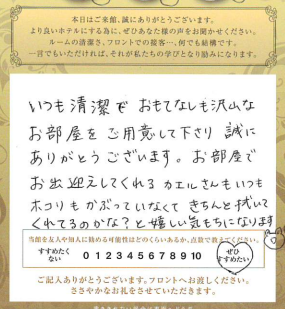 本日はご来館、誠にありがとうございます。
より良いホテルにする為に、ぜひあなた様の声をお聞かせください。
ルームの清潔さ、フロントでの接客…、何でも結構です。
一言でもいただければ、それが私たちの学びとなり励みになります。
いつも清潔で おもてなしも沢山な
お部屋を ご用意して下さり 誠に
ありがとうございます。お部屋で
お出迎えしてくれる カエルさんもいつも
ホコリもかぶっていなくて きちんと拭いて
くれてるのかな?と嬉しい気もちになります
当館を友人や知人に勧める可能性はどのくらいあるか、点数で教えてください。
すすめたくない 0 1 2 3 4 5 6 7 8 9 10 ぜひすすめたい
ご記入ありがとうございます。フロントへお渡しください。
ささやかなお礼をさせていただきます。